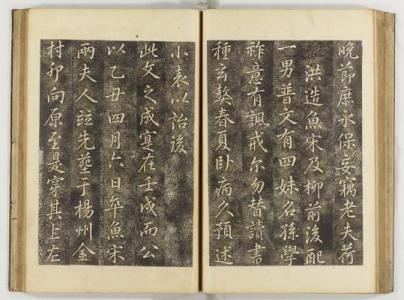 晩節庶永保妄竊老夫荷
洪造魚宋及柳前後配
一男普文有四妹名孫學
祚意有諷戒尓勿替讀書
種玄㝅春夏卧病久預述
小表以詒後
此文之成寔在壬戌而公
以乙丑四月六日卒魚宋
兩夫人竝先塟于楊州金
村卯向原至是穿其上左